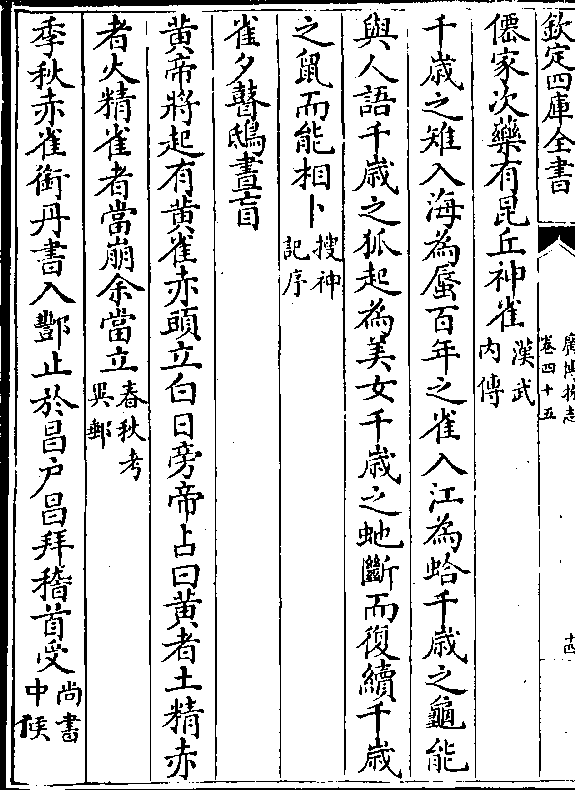 欽定四庫全書
廣博物志
卷四十五
十四
僊家次藥有昆丘神雀漢武
內傳
千歲之雉入海為蜃百年之雀入江為蛤千歲之龜能
與人語千歲之狐起為美女千歲之虵斷而復續千歲
之鼠而能相卜搜神
記序
雀夕瞽鴟晝盲
黄帝將起有黄雀赤頭立白日旁帝占曰黄者土精赤
者火精雀者當崩余當立春秋考
異郵
季秋赤雀銜丹書入酆止於昌户昌拜稽首受尚書
中候